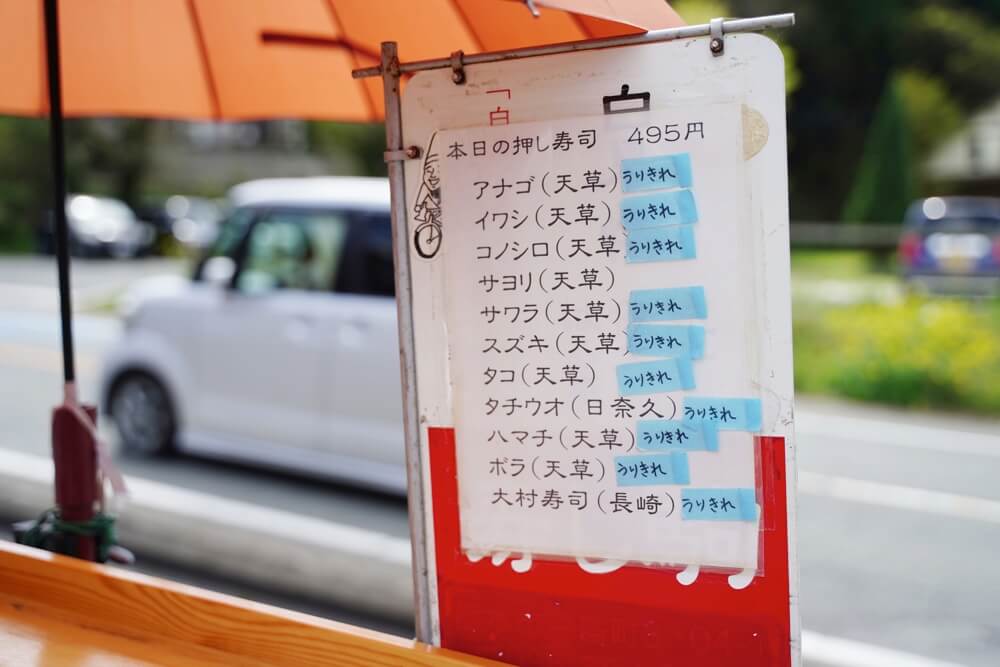 本日の押し寿司 495円
アナゴ(天草) うりきれ
イワシ(天草) うりきれ
コノシロ(天草 うりきれ
サヨリ(天草)
サワラ(天草) うりきれ
スズキ(天草) うりきれ
タコ(天草) うりきれ
タチウオ(日奈久) うりきれ
ハマチ(天草) うりきれ
ボラ(天草) うりきれ
大村寿司(長崎) うりきれ